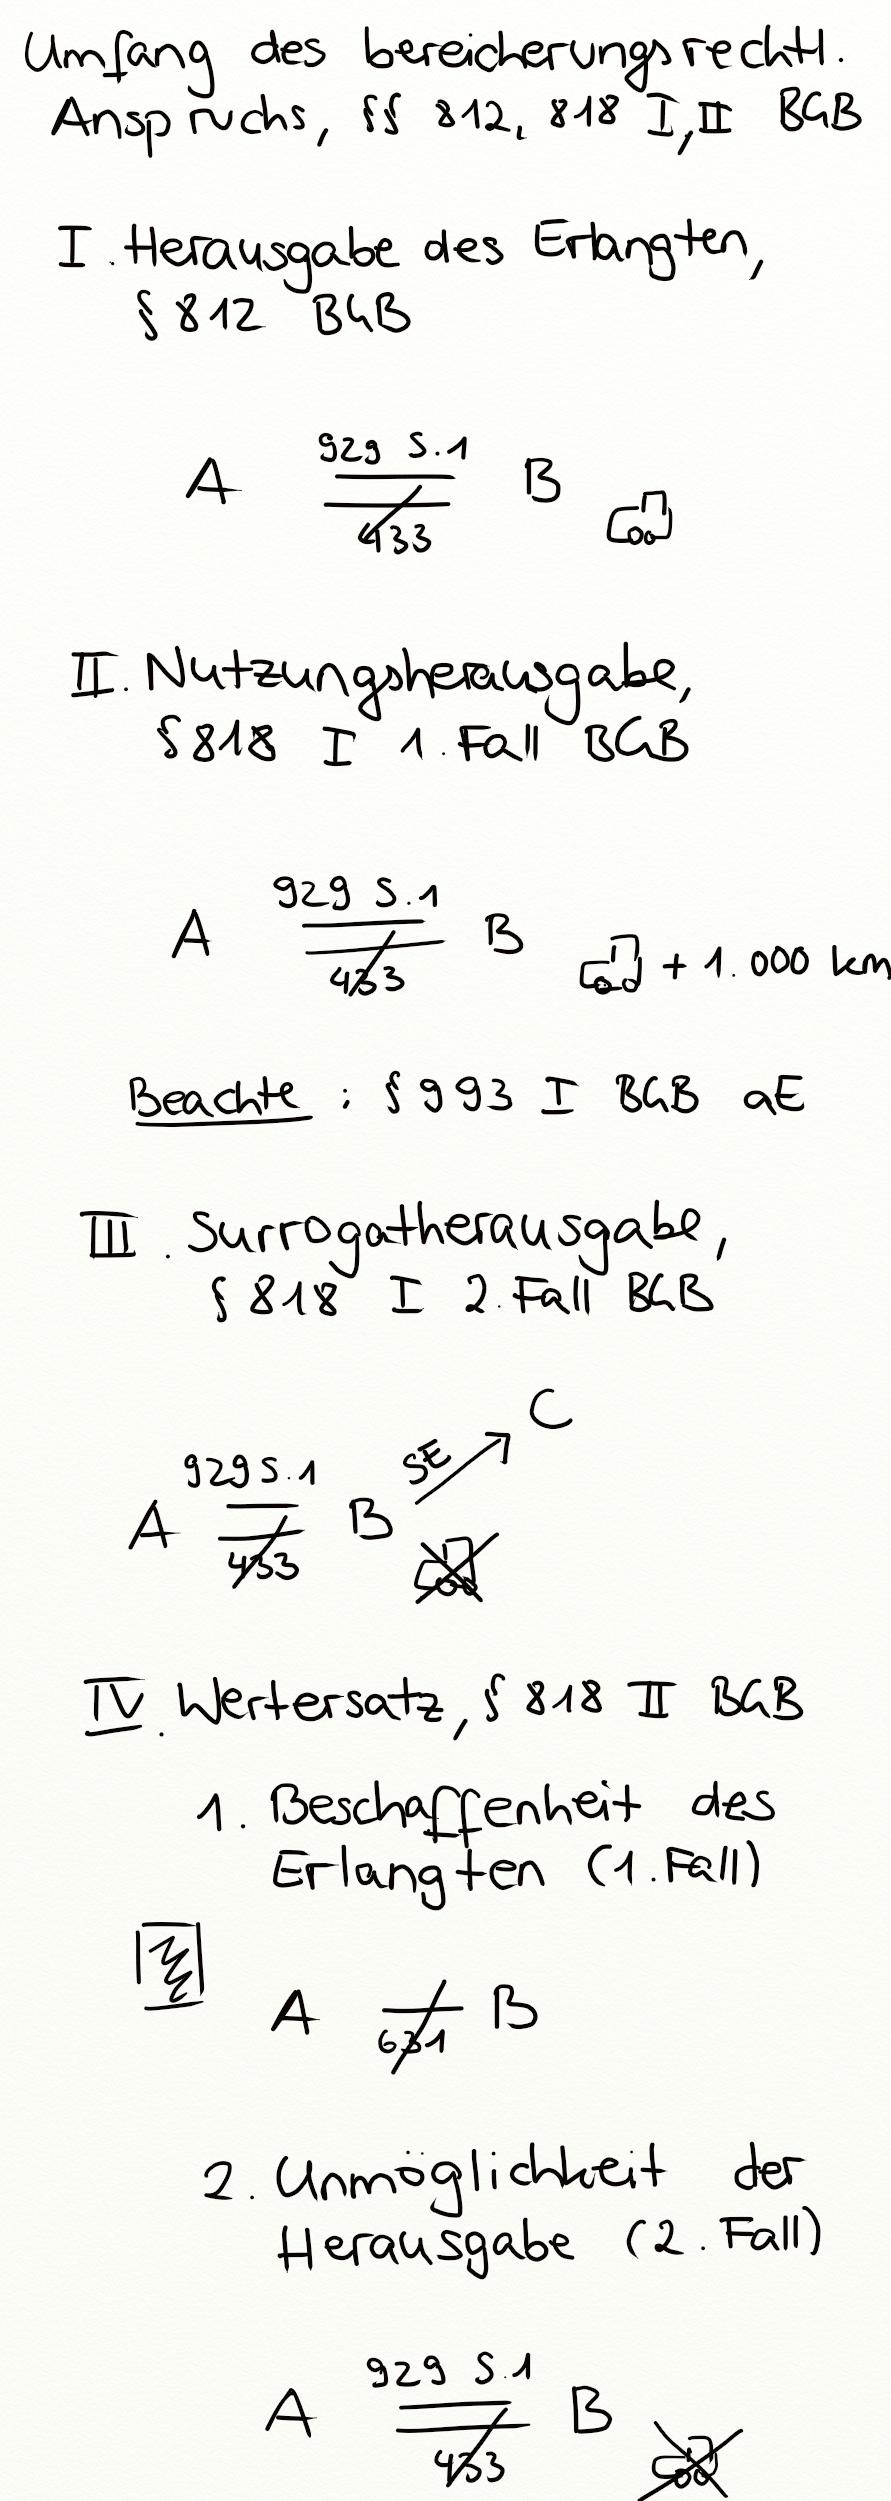 Umfang des bereicherungsrechtl.
Anspruchs, §§ 812, 818 I, II BGB
I. Herausgabe des Erlangten,
§ 812 BGB
929 S. 1
A B
433
II. Nutzungsherausgabe,
§ 818 I 1. Fall BGB
929 S. 1
A B + 1.000 km
433
Beachte : § 993 I BGB aE
III. Surrogatherausgabe,
§ 818 I 2. Fall BGB
C
929 S. 1 SE
A B
433
IV. Wertersatz, § 818 II BGB
1. Beschaffenheit des
Erlangten (1. Fall)
A B
631
2. Unmöglichkeit der
Herausgabe (2. Fall)
929 S. 1
A B
433